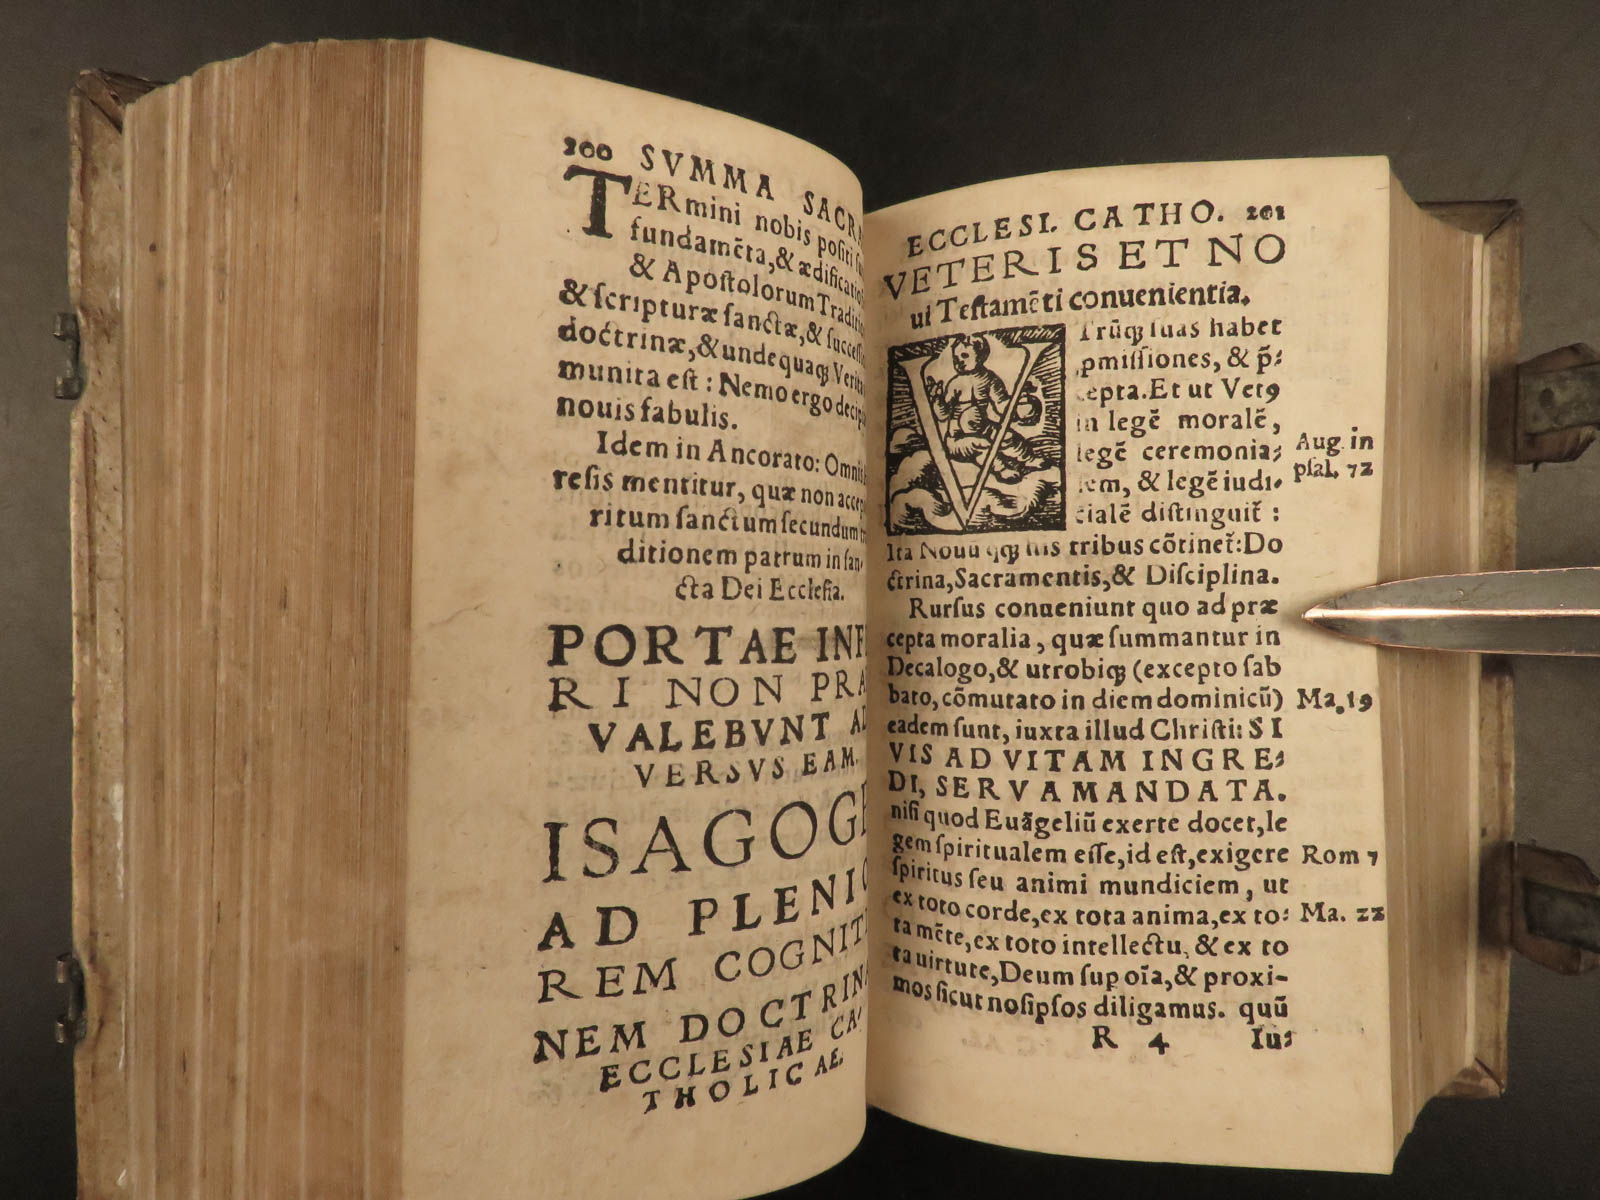 200 SVMMA SACR
TERmini nobis positi
fundamēta, & ædificatio
& Apostolorum Traditio
& scripturæ sanctæ, & successi
doctrinæ, & undequaqꝫ Verita
munita est: Nemo ergo decip
nouis fabulis.
Idem in Ancorato: Omnis
resis mentitur, quæ non accep
ritum sanctum secundum tr
ditionem patrum in san⸗
cta Dei Ecclesia.
PORTAE INF
RI NON PRÆ
VALEBVNT AD
VERSVS EAM.
ISAGOGE
AD PLENIO
REM COGNITI
NEM DOCTRINA
ECCLESIAE CA⸗
THOLICAE.
ECCLESI. CATHO. 201
VETERIS ET NO
ui Testamēti conuenientia.
VTrūqꝫ suas habet
pmissiones, & p̄⸗
cepta. Et ut Vetꝰ
in legē moralē,
legē ceremonia⸗
lem, & legē iudi⸗
cialē distinguit̄:
Ita Nouū qqꝫ his tribus cōtinet̄: Do
ctrina, Sacramentis, & Disciplina.
Rursus conueniunt quo ad præ
cepta moralia, quæ summantur in
Decalogo, & utrobiqꝫ (excepto sab
bato, cōmutato in diem dominicū)
eadem sunt, iuxta illud Christi: SI
VIS AD VITAM INGRE⸗
DI, SERVA MANDATA.
nisi quod Euāgeliū exerte docet, le
gem spiritualem esse, id est, exigere
spiritus seu animi mundiciem, ut
ex toto corde, ex tota anima, ex to⸗
ta mēte, ex toto intellectu, & ex to
ta uirtute, Deum sup oīa, & proxi-
mos sicut nosipsos diligamus. quū
R 4 Iu⸗
Aug. in
psal. 72
Ma. 19
Rom 7
Ma. 22